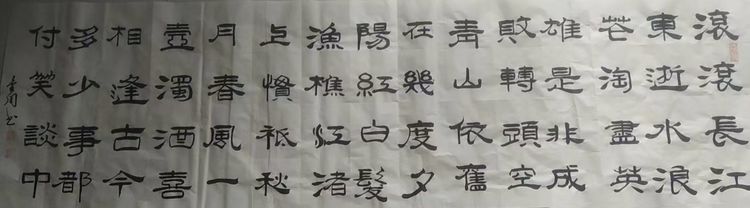 滾滾長江
東逝水浪
花淘盡英
雄是非成
敗轉頭空
青山依舊
在幾度夕
陽紅白髮
漁樵江渚
上慣秋
月春風一
壺濁酒喜
相逢古今
多少事都
付笑談中